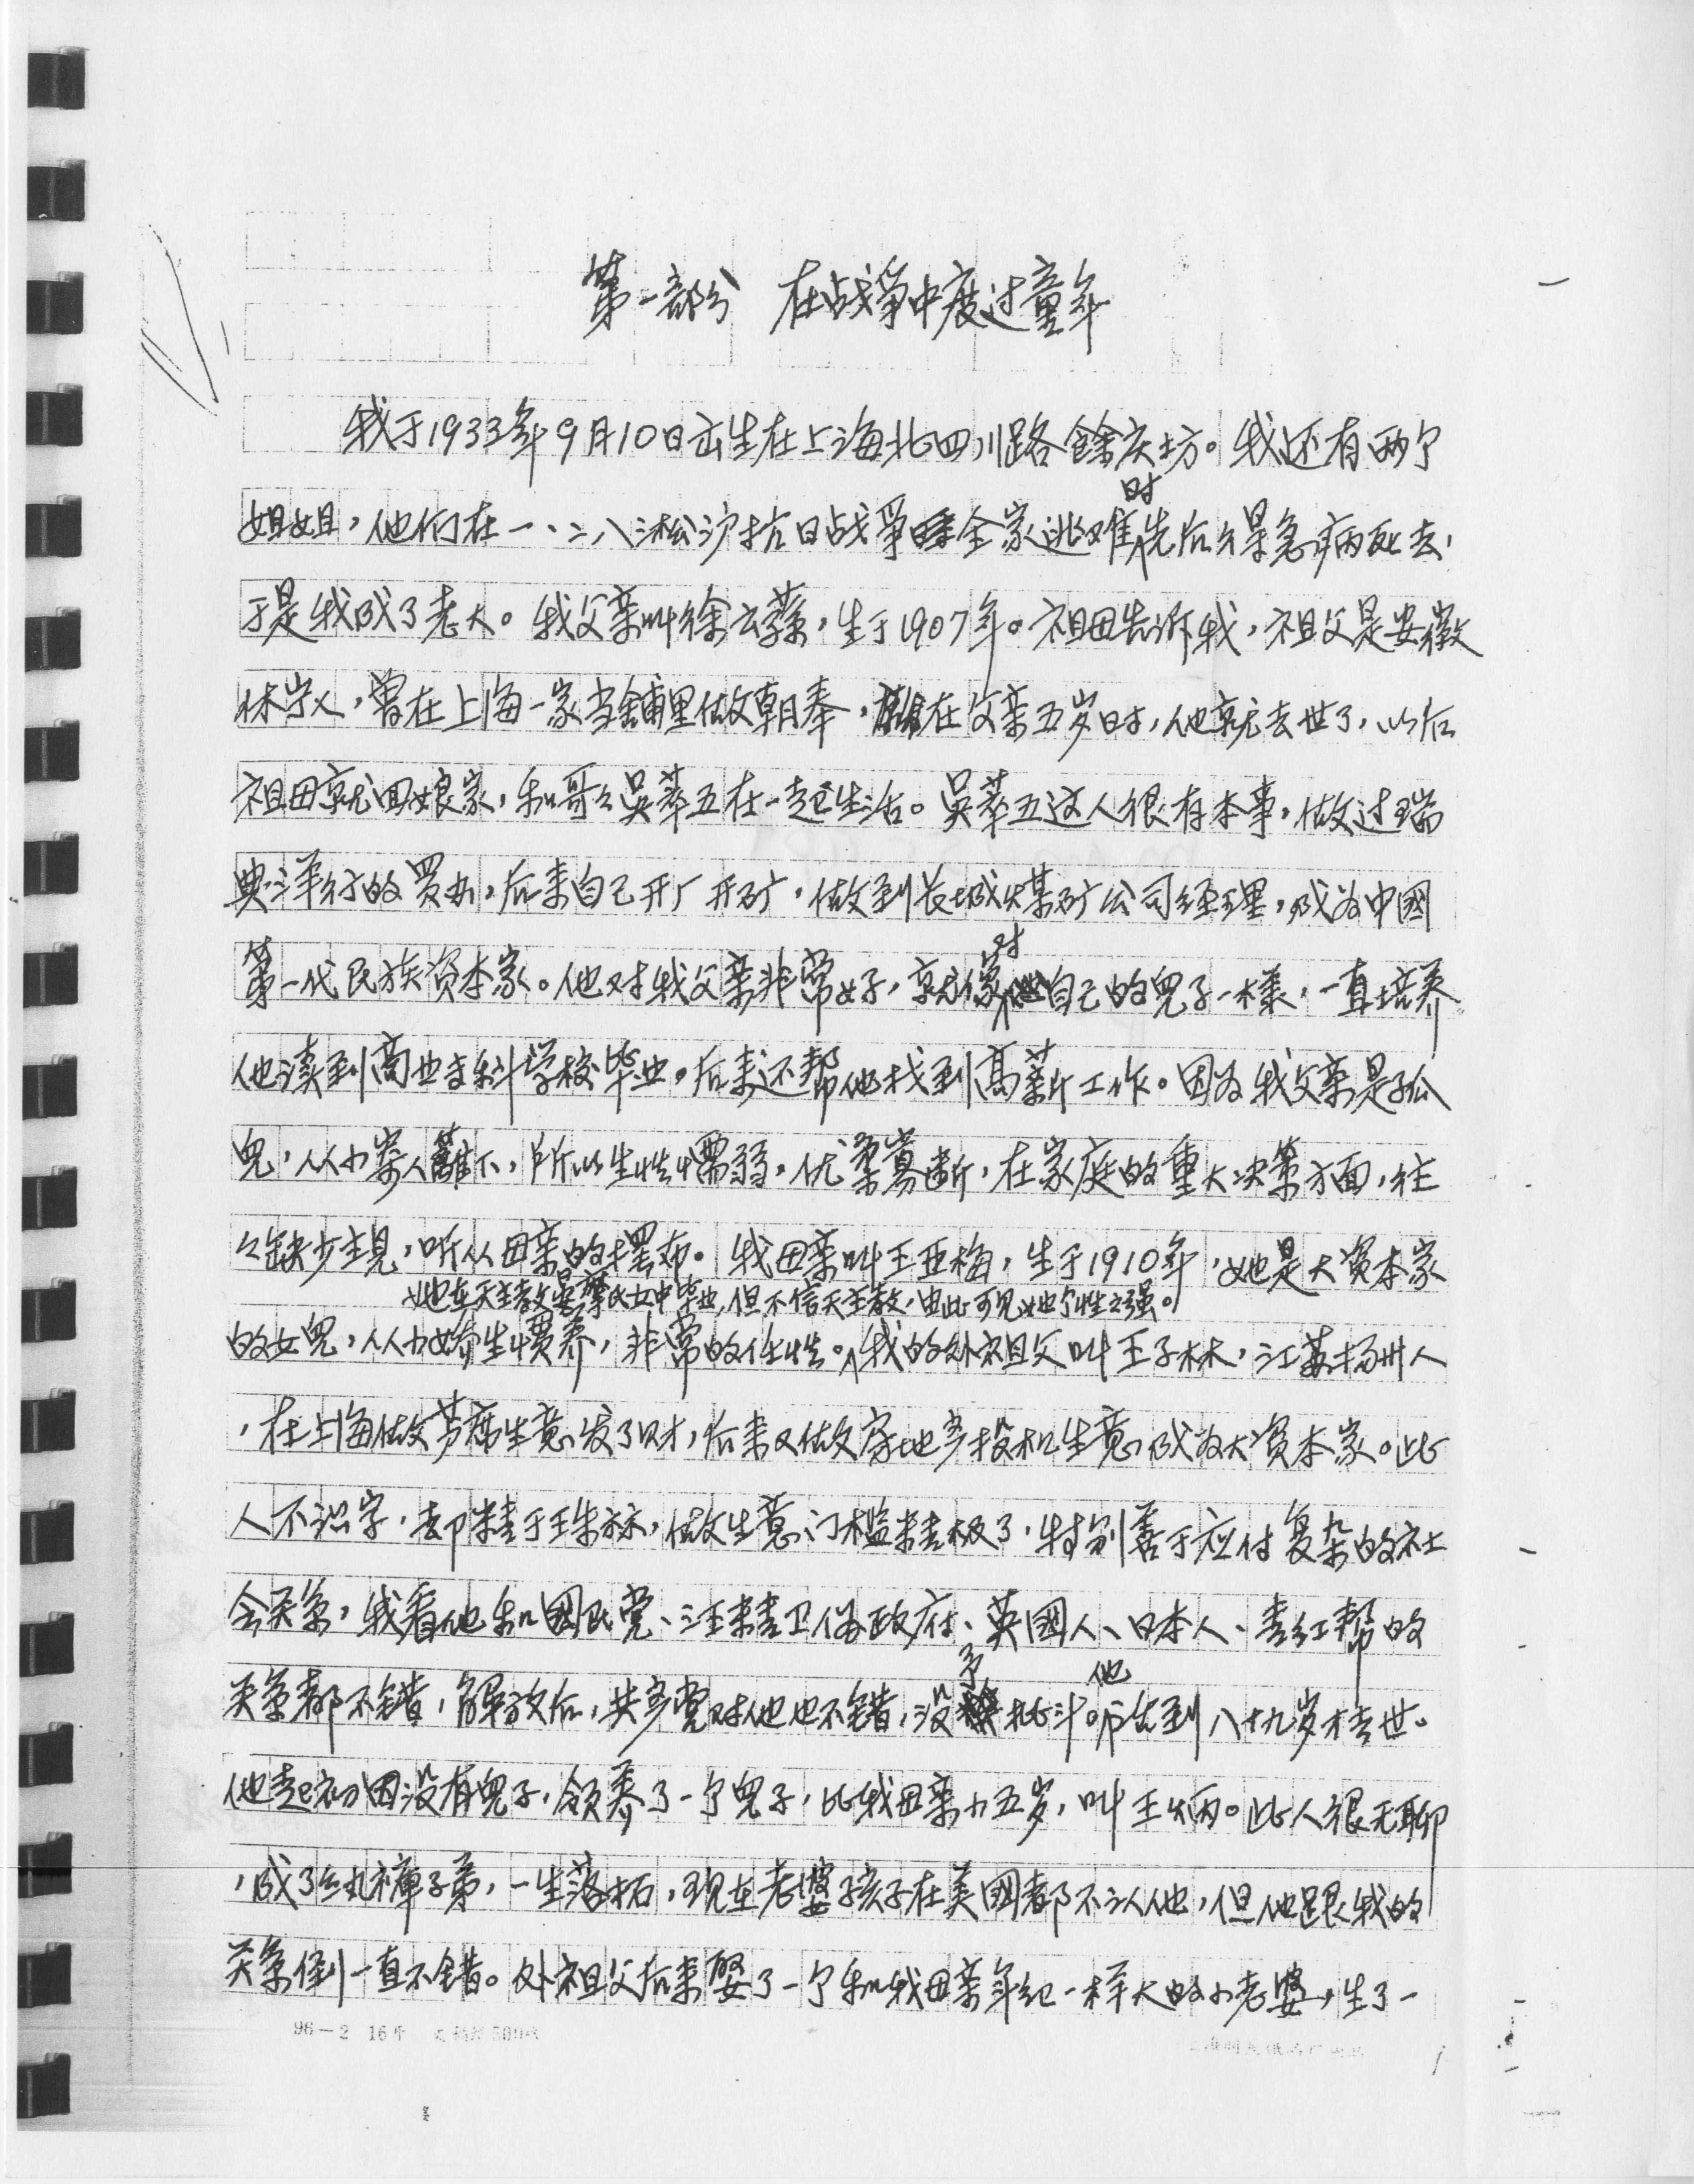 第一部分 在战争中度过童年
我于1933年9月10日出生在上海北四川路馀庆坊。我还有两个
姐姐，他们在一·二八淞沪抗日战争全家逃难时先后得急病死去，
于是我成了老大。我父亲叫徐云荪，生于1907年。祖母告诉我，祖父是安徽
休宁人，曾在上海一家当铺里做朝奉，在父亲五岁时，他就去世了，以后
祖母就回娘家，和哥々吴莘五在一起生活。吴莘五这人很有本事，做过瑞
典洋行的买办，后来自己开厂开矿，做到长城煤矿公司经理，成为中國
第一代民族资本家。他对我父亲非常好，就像对自己的兒子一様，一直培养
他读到商业专科学校毕业。后来还帮他找到高薪工作。因为我父亲是孤
兒，从小寄人籬下，所以生性懦弱，优柔寡断，在家庭的重大决策方面，往
々缺少主見，听从母亲的摆布。我母亲叫王亚梅，生于1910年，她是大资本家
她在天主教晏摩氏女中毕业，但不信天主教，由此可见她个性之强。
的女兒，从小娇生惯养，非常的任性。我的外祖父叫王子林，江苏扬州人
，在上海做芦席生意发了财，后来又做房地产投机生意成为大资本家。此
人不识字，却精于珠祘，做生意门槛精极了，特别善于应付复杂的社
会关系，我看他和國民党、汪精卫伪政府、英國人、日本人、青红帮的
关系都不错，解放后，共产党对他也不错，没予批斗。他活到八十九岁才去世。
他起初因没有兒子，领养了一个兒子，比我母亲小五岁，叫王炳。此人很无聊
，成了纨裤子弟，一生落拓，现在老婆孩子在美國都不认他，但他跟我的
关系倒一直不错。外祖父后来娶了一个和我母亲年纪一样大的小老婆，生了一
96－2 16开
1